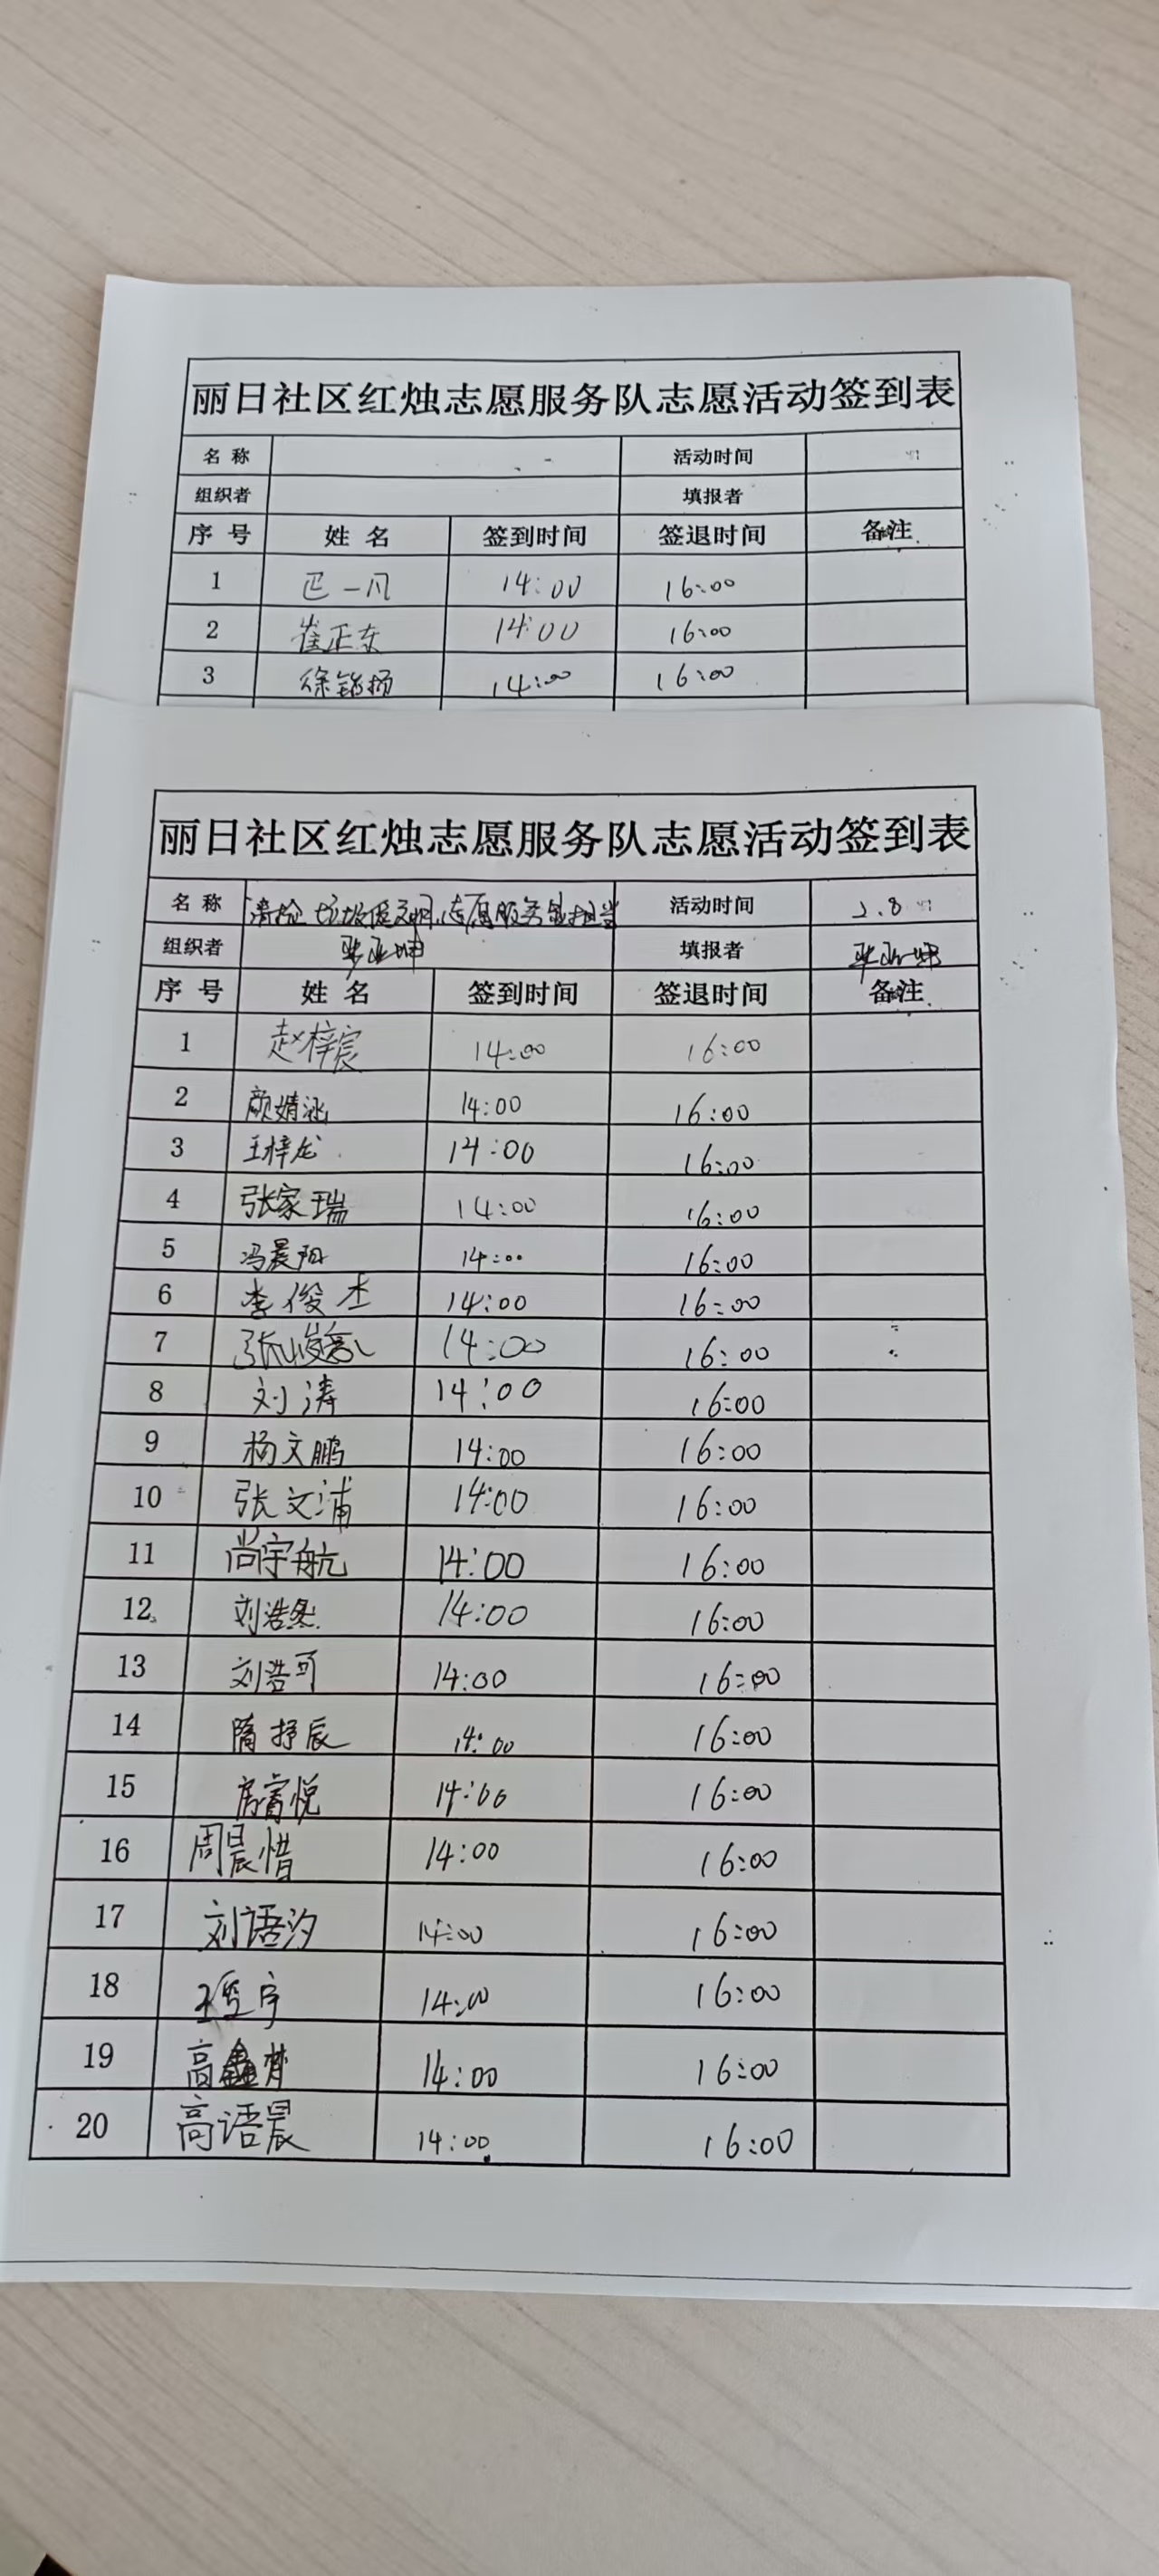 丽日社区红烛志愿服务队志愿活动签到表
名 称 活动时间
组织者 填报者
序 号 姓 名 签到时间 签退时间 备注
1 一凡 14:00 16:00
2 崔正东 14:00 16:00
3 徐铭扬 14:00 16:00
丽日社区红烛志愿服务队志愿活动签到表
名 称 清捡垃圾促文明,志愿服务勇担当 活动时间 2.8
组织者 填报者
序 号 姓 名 签到时间 签退时间 备注
1 赵梓宸 14:00 16:00
2 颜婧涵 14:00 16:00
3 王梓龙 14:00 16:00
4 张家瑞 14:00 16:00
5 冯晨阳 14:00 16:00
6 李俊杰 14:00 16:00
7 张峻豪 14:00 16:00
8 刘涛 14:00 16:00
9 杨文鹏 14:00 16:00
10 张文浦 14:00 16:00
11 尚宇航 14:00 16:00
12 刘浩然 14:00 16:00
13 刘浩可 14:00 16:00
14 隋抒辰 14:00 16:00
15 房睿悦 14:00 16:00
16 周晨惜 14:00 16:00
17 刘语汐 14:00 16:00
18 王宇 14:00 16:00
19 高鑫梦 14:00 16:00
20 高语晨 14:00 16:00